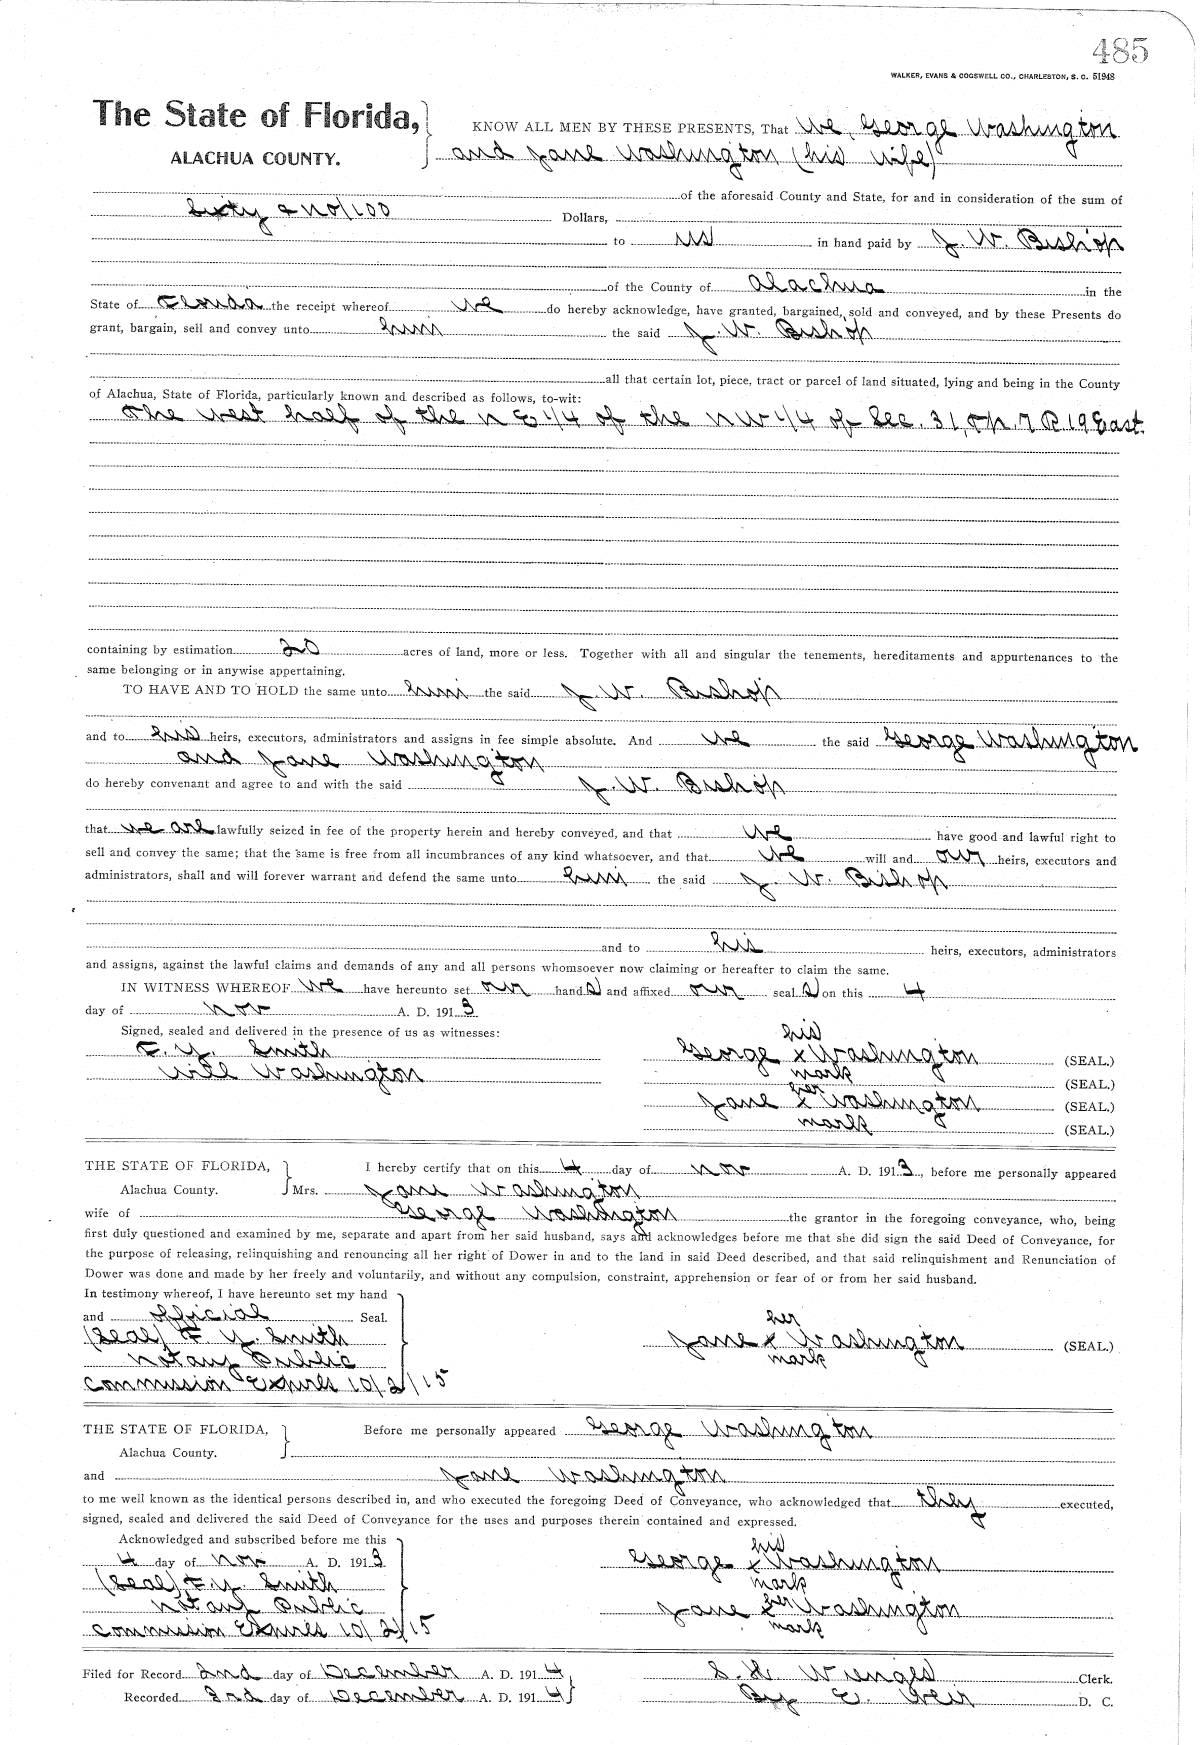 485
WALKER, EVANS & COGSWELL CO., CHARLESTON, S. C. 51948
The State of Florida,
ALACHUA COUNTY.
KNOW ALL MEN BY THESE PRESENTS, That We, George Washington
and Jane Washington (his wife)
of the aforesaid County and State, for and in consideration of the sum of
Sixty & no/100 Dollars,
to us in hand paid by J. W. Bishop
of the County of Alachua in the
State of Florida the receipt whereof we do hereby acknowledge, have granted, bargained, sold and conveyed, and by these Presents do
grant, bargain, sell and convey unto him the said J. W. Bishop
all that certain lot, piece, tract or parcel of land situated, lying and being in the County
of Alachua, State of Florida, particularly known and described as follows, to-wit:
The west half of the n E 1/4 of the n W 1/4 of Sec. 31, Tp. 7 R. 19 East.
containing by estimation 20 acres of land, more or less. Together with all and singular the tenements, hereditaments and appurtenances to the
same belonging or in anywise appertaining.
TO HAVE AND TO HOLD the same unto him the said J W. Bishop
and to his heirs, executors, administrators and assigns in fee simple absolute. And we the said George Washington
and Jane Washington
do hereby convenant and agree to and with the said J. W. Bishop
that we are lawfully seized in fee of the property herein and hereby conveyed, and that we have good and lawful right to
sell and convey the same; that the same is free from all incumbrances of any kind whatsoever, and that we will and our heirs, executors and
administrators, shall and will forever warrant and defend the same unto him the said J. W. Bishop
and to his heirs, executors, administrators
and assigns, against the lawful claims and demands of any and all persons whomsoever now claiming or hereafter to claim the same.
IN WITNESS WHEREOF we have hereunto set our hand s and affixed our seal s on this 4
day of Nov A. D. 191 3
Signed, sealed and delivered in the presence of us as witnesses:
F. Y. Smith
Will Washington
his
George x Washington (SEAL.)
mark (SEAL.)
her
Jane x Washington (SEAL.)
mark (SEAL.)
THE STATE OF FLORIDA,
Alachua County.
I hereby certify that on this 4 day of Nov A. D. 191 3, before me personally appeared
Mrs. Jane Washington
wife of George Washington the grantor in the foregoing conveyance, who, being
first duly questioned and examined by me, separate and apart from her said husband, says and acknowledges before me that she did sign the said Deed of Conveyance, for
the purpose of releasing, relinquishing and renouncing all her right of Dower in and to the land in said Deed described, and that said relinquishment and Renunciation of
Dower was done and made by her freely and voluntarily, and without any compulsion, constraint, apprehension or fear of or from her said husband.
In testimony whereof, I have hereunto set my hand
and official Seal.
(Seal) F Y. Smith
Notary Public
Commission Expires 10/2/15
her
Jane x Washington (SEAL.)
mark
THE STATE OF FLORIDA,
Alachua County.
Before me personally appeared George Washington
and Jane Washington
to me well known as the identical persons described in, and who executed the foregoing Deed of Conveyance, who acknowledged that they executed,
signed, sealed and delivered the said Deed of Conveyance for the uses and purposes therein contained and expressed.
Acknowledged and subscribed before me this
4 day of Nov A. D. 191 3
(Seal) F. Y. Smith
Notary Public
Commission Expires 10/2/15
his
George x Washington
mark
Jane her x Washington
mark
Filed for Record 2nd day of December A. D. 191 4
Recorded 3rd day of December A. D. 191 4
S. H. Wienges Clerk.
By E. Weir D. C.